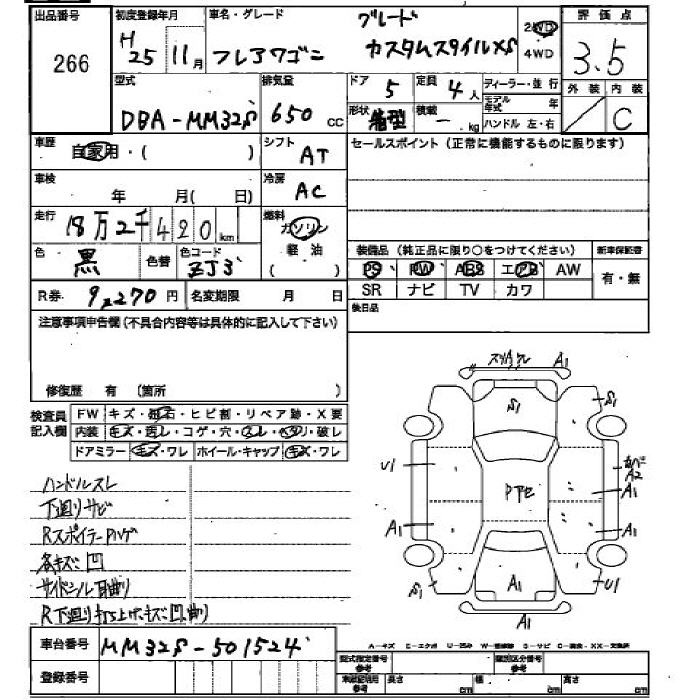 出品番号 初度登録年月 車名・グレード グレード 2WD 評価点
266 H25 11月 フレアワゴン カスタムスタイルXS 4WD 3.5
型式 排気量 ドア 5 定員 4人 ディーラー・並行 外装 内装
DBA-MM32S 650cc 形状 箱型 積載 - kg モデル年式 年 C
ハンドル 左・右
車歴 自家用・( ) シフト AT セールスポイント(正常に機能するものに限ります)
車検 年 月( 日) 冷房 AC
走行 18万2千420km 燃料 ガソリン
軽油
( )
色 黒 色替 色コード ZJ3 装備品(純正品に限り○をつけてください) 新車保証書
PS PW ABS エアB AW 有・無
R券 9,270円 名変期限 月 日 SR ナビ TV カワ
注意事項申告欄(不具合内容等は具体的に記入して下さい) 後日品
修復歴 有 (箇所 )
検査員記入欄 FW キズ・飛石・ヒビ割・リペア跡・X要
内装 キズ・汚レ・コゲ・穴・スレ・ヘタリ・破レ
ドアミラー キズ・ワレ ホイール・キャップ キズ・ワレ
ハンドルスレ
下廻りサビ
Rスポイラーハゲ
各キズ凹
サイドシル曲り
R下廻り打ち上げキズ凹曲り
スリキズ A1
S1 S1
U1 カバーA2
Pアセ A1
A1 A1
S1 A1 U1
A1
車台番号 MM32S-501524
A-キズ E-エクボ U-凹み W-補修跡 S-サビ C-腐食・XX-交換済
登録番号 型式指定番号 参考 類別区分番号 参考
車検証明用 参考 長さ cm 幅 cm 高さ cm